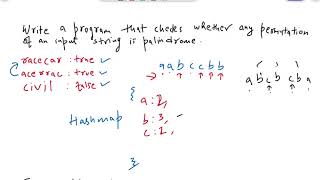 Write a program that checks whether any permutation
of an input string is palindrome.
racecar : true ✓
acerrac : true ✓
civil : false ✓
a a b c c b b
a b c b c b a
{
a : 2,
Hashmap b : 3,
c : 2,
3